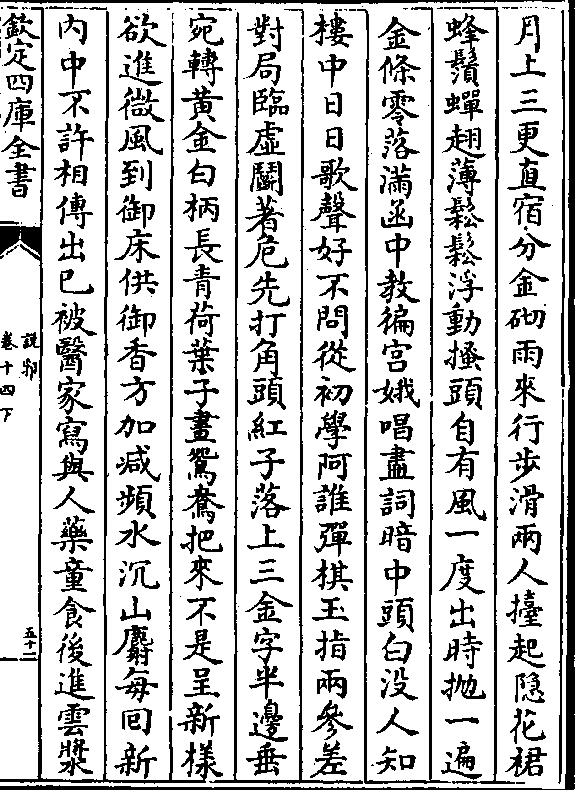 月上三更直宿分金砌雨來行步滑兩人擡起隐花裙
蜂鬚蟬翅薄鬆鬆浮動搔頭自有風一度出時抛一遍
金條零落滿函中教徧宫娥唱盡詞暗中頭白没人知
樓中日日歌聲好不問從初學阿誰彈棋玉指兩參差
對局臨虚鬭著危先打角頭紅子落上三金字半邊垂
宛轉黄金白柄長青荷葉子畫鴛鴦把來不是呈新様
欲進微風到御床供御香方加减頻水沉山麝每回新
内中不許相傳出已被醫家寫與人藥童食後進雲漿
欽定四庫全書
說郛
卷十四下
五十一